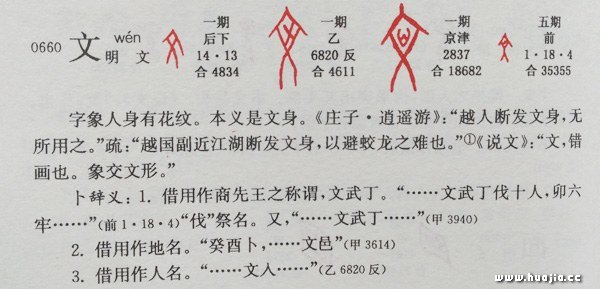 0660 文 wén 明 文
一期 后下 14·13 合4834
一期 乙 6820反 合4611
一期 京津 2837 合18682
五期 前 1·18·4 合35355
字象人身有花纹。本义是文身。《庄子·逍遥游》：“越人断发文身，无
所用之。”疏：“越国副近江湖断发文身，以避蛟龙之难也。”①《说文》：“文，错
画也。象交文形。”
卜辞义：1. 借用作商先王之称谓，文武丁。“……文武丁伐十人，卯六
牢……”(前1·18·4)“伐”祭名。又，“……文武丁……”(甲3940)
2. 借用作地名。“癸酉卜，……文邑”(甲3614)
3. 借用作人名。“……文入……”(乙6820反)
www.huajia.cc